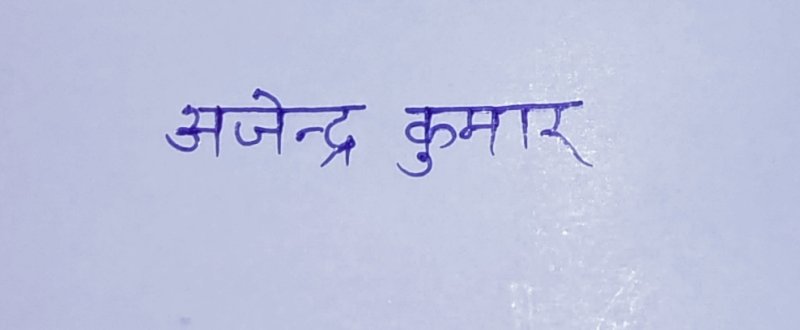 अजेन्द्र कुमार